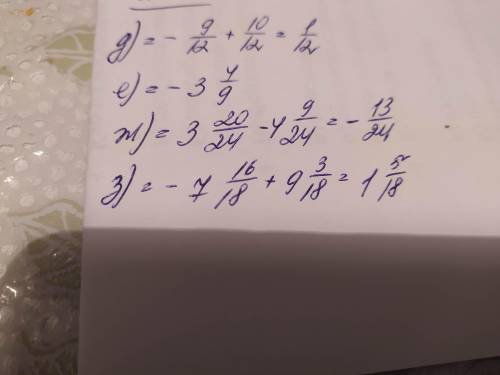 д) = - 9/12 + 10/12 = 1/12
е) = - 3 4/9
ж) = 3 20/24 - 4 9/24 = - 13/24
з) = - 7 16/18 + 9 3/18 = 1 5/18